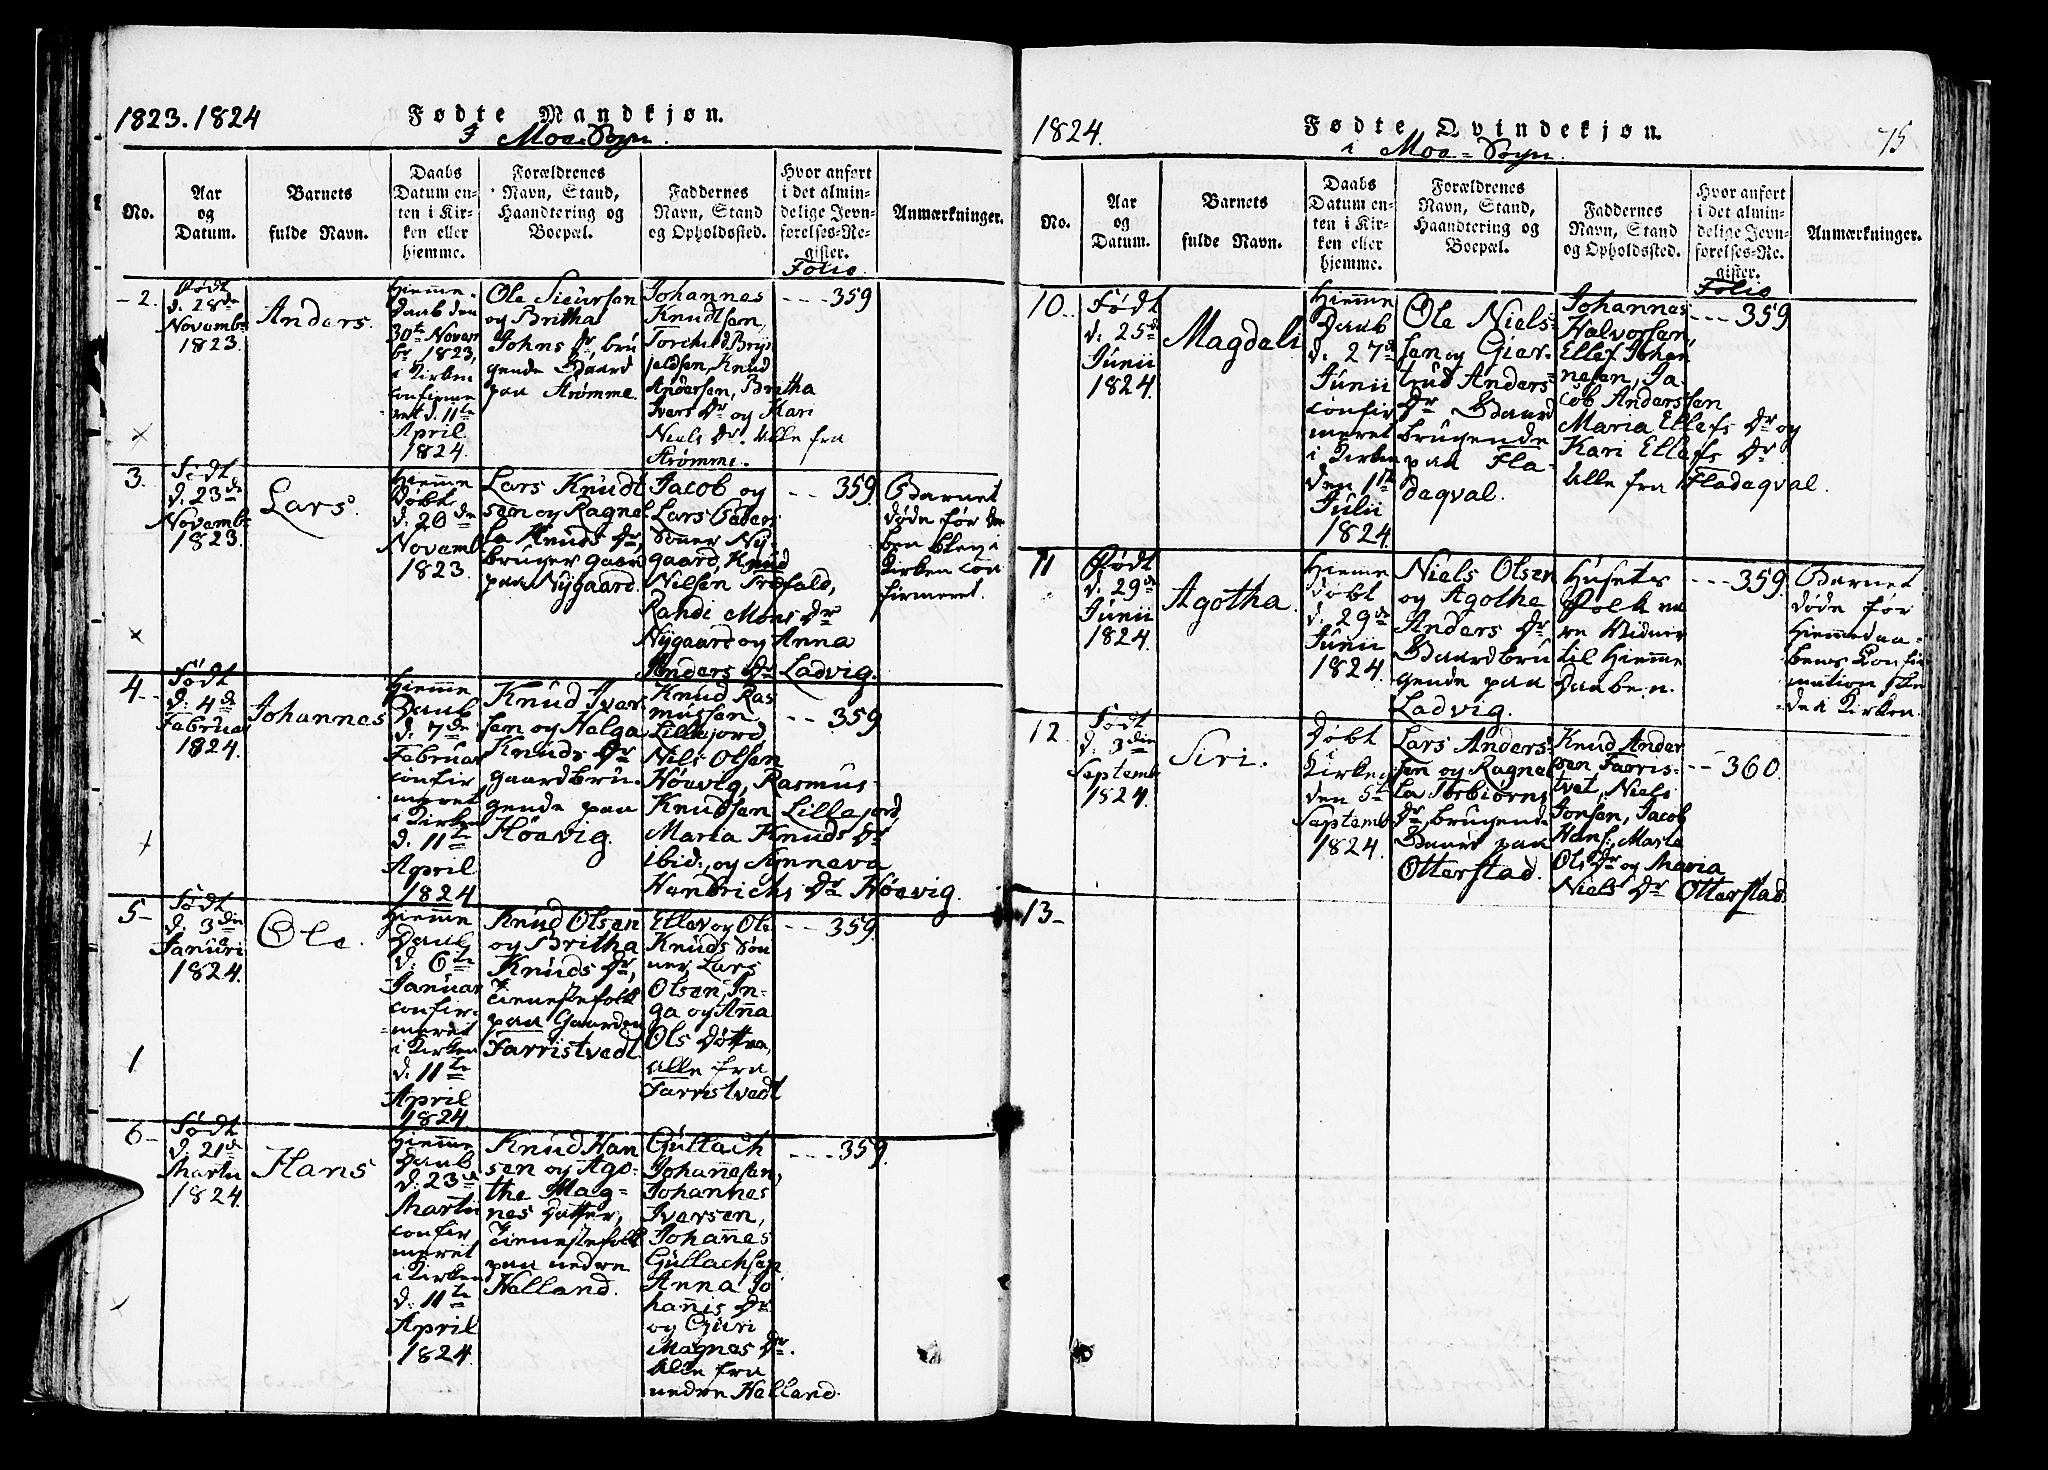 1823. 1824
Fødte Mandkjøn.
I Moe-Sogn.
No.
Aar
og
Datum.
Barnets
fulde Navn.
Daabs
Datum en-
ten i Kir-
ken eller
hjemme.
Forældrenes
Navn, Stand,
Haandtering og
Boepæl.
Faddernes
Navn, Stand
og Opholdssted.
Hvor anført
i det almin-
delige Jevn-
førelses-Re-
gister.
Folio.
Anmærkninger.
2.
Født
d. 28de
Novembr
1823.
Anders.
Hiemme-
Daab den
30te Novem
br, 1823,
i Kirken
confirme
ret d. 11te
April
1824.
Ole Siursen
og Britha
Johns Dr, bru
gende Gaard
paa Strømme.
Johannes
Knudsen,
Torchild Bryn
jeldsen, Knud
Andersen, Britha
Ivers Dr og Kari
Niels Dr. Alle fra
Strømme.
359
3.
Født
d. 23de
Novembr
1823.
Lars.
Hiemme
Døbt
d. 26de
Novemb
1823.
Lars Knudt
sen og Ragnel
la Knuds Dr,
bruger gaar
paa Nygaard.
Jacob og
Lars Peders
Sønner Ny-
gaard, Knud
Nilsen Træfald,
Randi Mons Dr
Nygaard og Anna
Anders Dr Ladvig.
359
Barnet
døde før Da
ben blev i
Kirken con
firmeret.
4
Født
d. 4de
Februar
1824.
Johannes
Hiemme
Daab
d. 7de
Februar
confir
meret
i Kirken
d. 11te
April
1824
Knud Iver
sen og Helga
Knuds Dr
gaardbru-
gende paa
Høevig.
Knud Ras
mussen
Lillejord
Nils Olsen
Høevig, Rasmus
Knudsen Lillejord,
Maria Knuds Dr
ibid:, og Synneva
Hendrichs Dr Høevig.
359
5
Født
d. 3die
Januri
1824.
Ole.
Hiemme
Daab
d. 6te
Januar
confir-
meret
i Kirken
d. 11te
April
1824
Knud Olsen
og Britha
Knuds Dr,
Tienestefolk
paa Gaarden
Farristvedt.
Ellev og Ole
Knuds Søn
ner, Lars
Olsen, In-
ga og Anna
Ols Døttre,
alle fra
Farristvedt
359.
1
6
Født
d. 21de
Martii
1824.
Hans
Hiemme
Daab
d. 23de
Martii
confir
meret
i Kirken
d. 11te
April
1824.
Knud Han
sen og Ago-
the Mag-
nes Datter,
Tienestefolk
paa nedre
Helland.
Gullach
Johannesen,
Johannes
Iversen,
Johannes
Gullachsen
Anna Jo
hannis Dr
og Guri
Magnes Dr.
Alle fra
nedre Helland.
359.
1824.
Fødte Qvindekjøn.
i Moe-Sogn.
75
No.
Aar
og
Datum.
Barnets
fulde Navn.
Daabs
Datum en-
ten i Kir-
ken eller
hjemme.
Forældrenes
Navn, Stand,
Haandtering og
Boepæl.
Faddernes
Navn, Stand
og Opholdssted.
Hvor anført
i det almin-
delige Jevn-
førelses-Re-
gister.
Folio
Anmærkninger.
10.
Født
d. 25de
Junii
1824.
Magdeli
Hiemme
Daab
d. 27de
Junii
confir
meret
i Kirken
den 11te
Julii
1824.
Ole Niels-
sen og Gier-
trud Anders
Dr Gaard
brugende
paa Fla-
deqval.
Johannes
Halvorsen,
Ellef Johan
nesen, Ja-
cob Anderssen
Maria Ellefs Dr og
Kari Ellefs Dr.
Alle fra Fladeqval.
359
11
Født
d. 29de
Junii
1824.
Agotha.
Hiemme
døbt
d. 29de
Junii
1824.
Niels Olsen
og Agothe
Anders Dr
Gaardbru
gende paa
Ladvig.
Husets
Folk va
re Vidner
til Hiemme
Daaben.
359.
Barnet
døde før
Hiemmedaa-
bens Confir
mation ske
de i Kirken.
12.
Født
d. 3die
Septemb.
1824.
Siri.
Døbt
i
Kirken
den 5te
Septemb
1824.
Lars Anders-
sen og Ragnel
la Torbiørns
Dr, brugende
Gaard paa
Otterstad.
Knud Ander
sen Farris-
tvet, Niels
Jonsen, Jacob
Hans:, Marta
Ols Dr og Maria
Niels Dr Otterstad.
360.
13